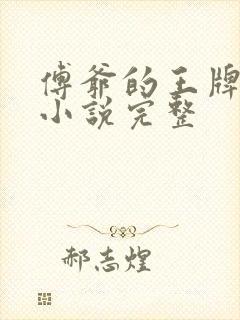 傅爷的王牌
小说完整
郝志煌